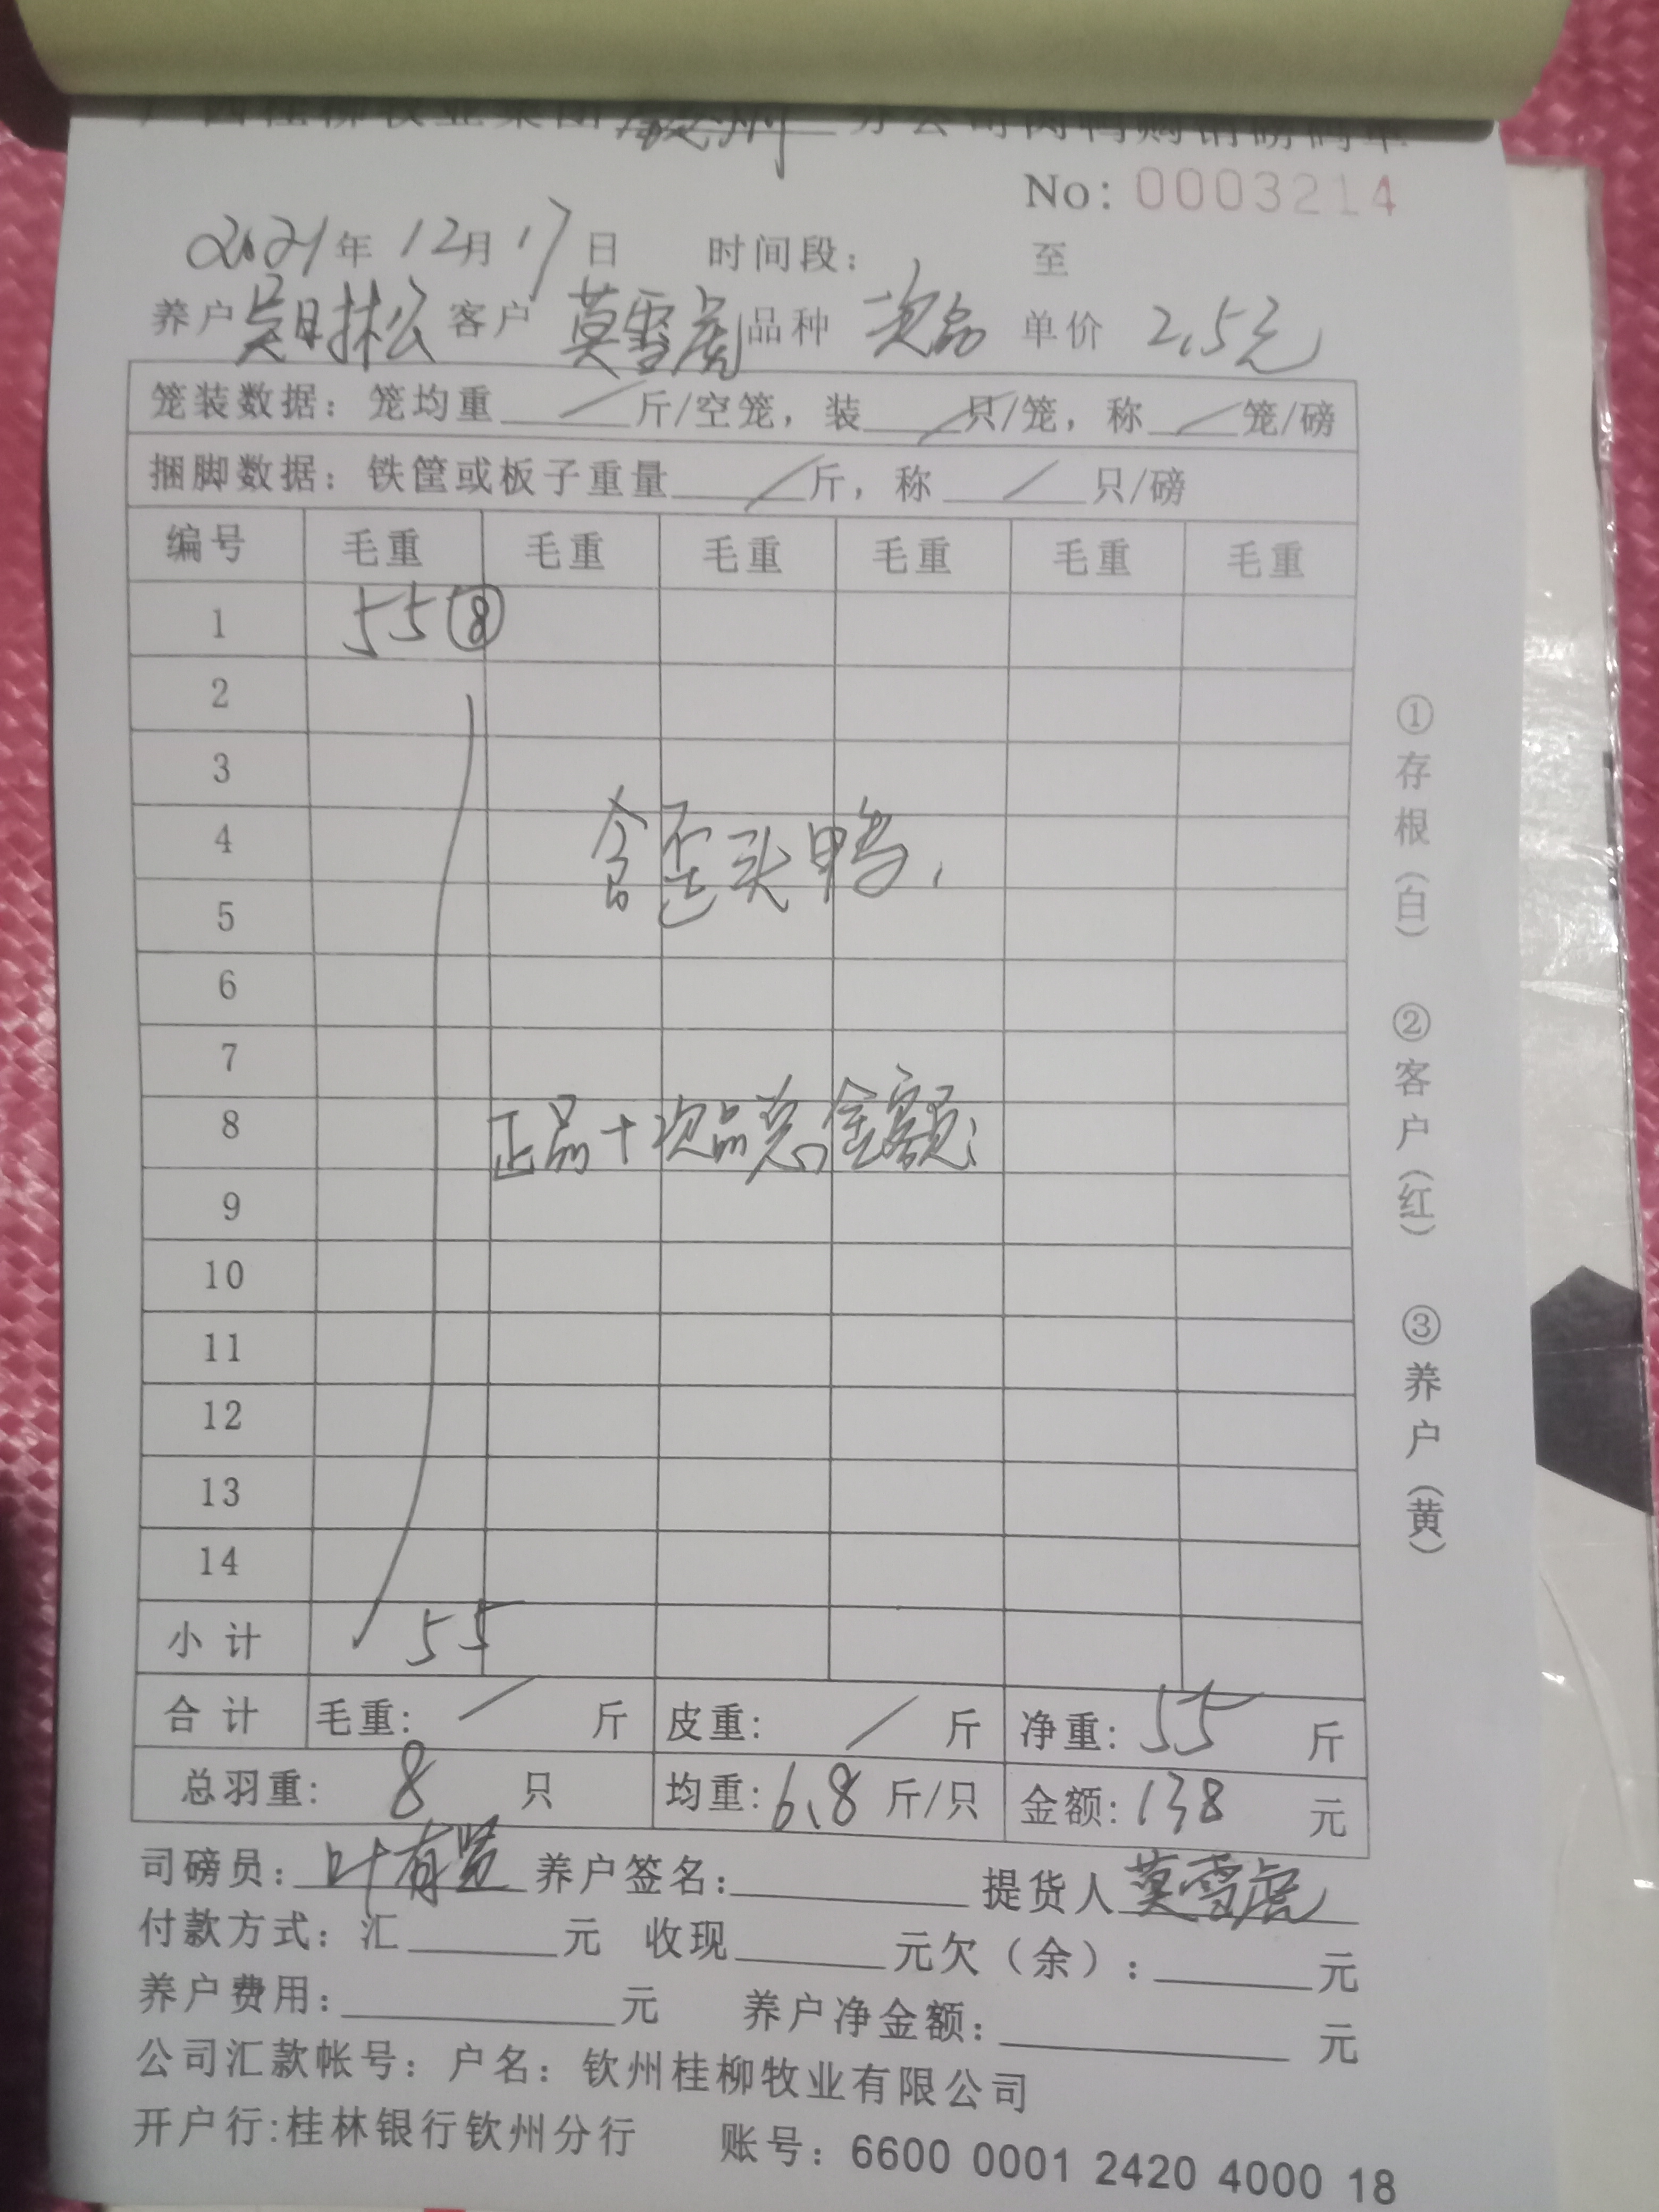 广西桂柳牧业集团钦州分公司肉鸭购销磅码单
No: 0003214
2021年 12月 17日 时间段: 至
养户 客户 莫雪虎 品种 次品 单价 2.5元
笼装数据: 笼均重 / 斤/空笼, 装 / 只/笼, 称 / 笼/磅
捆脚数据: 铁筐或板子重量 / 斤, 称 / 只/磅
编号 毛重 毛重 毛重 毛重 毛重 毛重
1 55⑧
2
3
4
含歪头鸭,
5
6
7
8 正品+次品总金额:
9
10
11
12
13
14
小计 55
合计 毛重: / 斤 皮重: / 斤 净重: 55 斤
总羽重: 8 只 均重: 6.8 斤/只 金额: 138 元
司磅员: 叶有 养户签名: 提货人 莫雪虎
付款方式: 汇 元 收现 元欠（余）: 元
养户费用: 元 养户净金额: 元
公司汇款帐号: 户名: 钦州桂柳牧业有限公司
开户行:桂林银行钦州分行 账号: 6600 0001 2420 4000 18
①存根（白） ②客户（红） ③养户（黄）